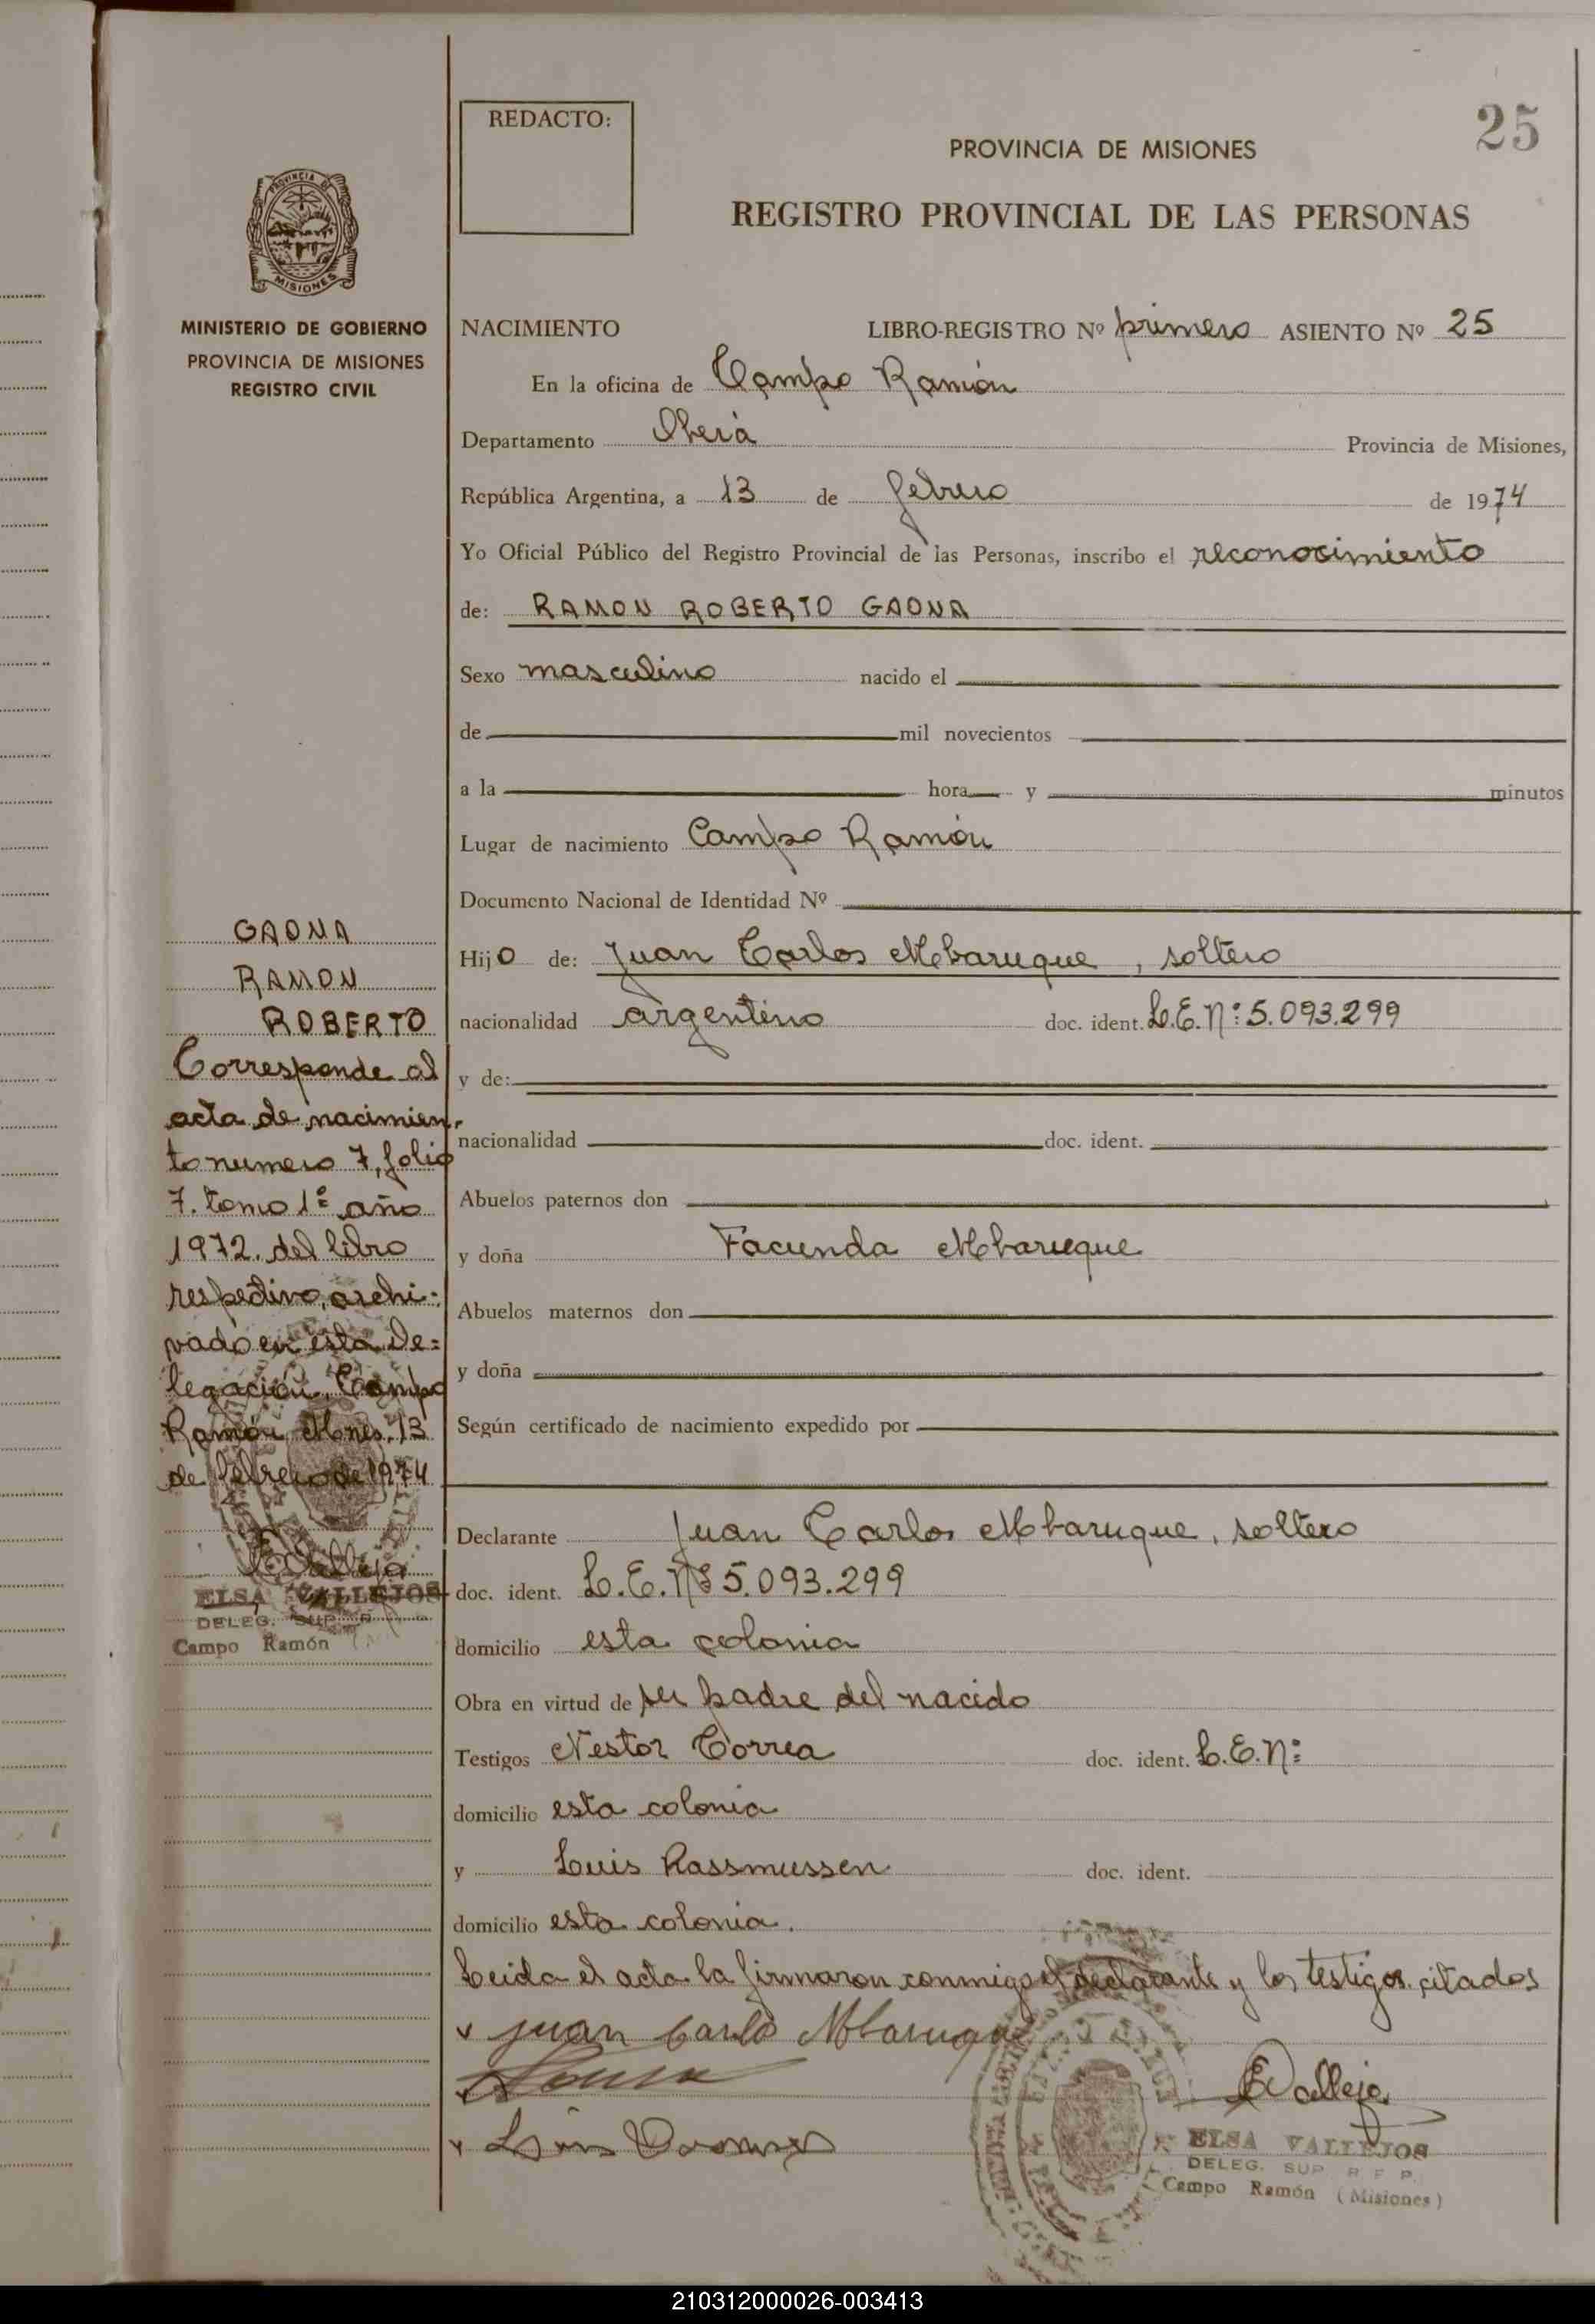 25
REDACTO:
PROVINCIA DE MISIONES
REGISTRO PROVINCIAL DE LAS PERSONAS
PROVINCIA DE
MISIONES
MINISTERIO DE GOBIERNO
PROVINCIA DE MISIONES
REGISTRO CIVIL
NACIMIENTO LIBRO-REGISTRO Nº primero ASIENTO Nº 25
En la oficina de Campo Ramón
Departamento Oberá Provincia de Misiones,
República Argentina, a 13 de febrero de 1974
Yo Oficial Público del Registro Provincial de las Personas, inscribo el reconocimiento
de: RAMON ROBERTO GAONA
Sexo masculino nacido el
de mil novecientos
a la hora y minutos
Lugar de nacimiento Campo Ramón
Documento Nacional de Identidad Nº
Hijo de: Juan Carlos Mbaruque, soltero
nacionalidad argentino doc. ident. L.E.Nº: 5.093.299
y de:
nacionalidad doc. ident.
Abuelos paternos don
y doña Facunda Mbaruque
Abuelos maternos don
y doña
Según certificado de nacimiento expedido por
Declarante Juan Carlos Mbaruque, soltero
doc. ident. L.E.Nº 5.093.299
domicilio esta colonia
Obra en virtud de ser padre del nacido
Testigos Nestor Correa doc. ident. L.E.Nº:
domicilio esta colonia
y Luis Rassmussen doc. ident.
domicilio esta colonia.
Leida el acta la firmaron conmigo el declarante y los testigos citados
Juan Carlo Mbaruque
EVallejo
ELSA VALLEJOS
DELEG. SUP R P P.
Campo Ramón (Misiones)
GAONA
RAMON
ROBERTO
Corresponde al
acta de nacimien-
to numero 7, folio
7. tomo 1º año
1972. del libro
respectivo, archi-
vado en esta De=
legación, Campo
Ramón Mnes. 13
de febrero de 1974
EVallejo
ELSA VALLEJOS
DELEG. SUP R
Campo Ramón
210312000026-003413